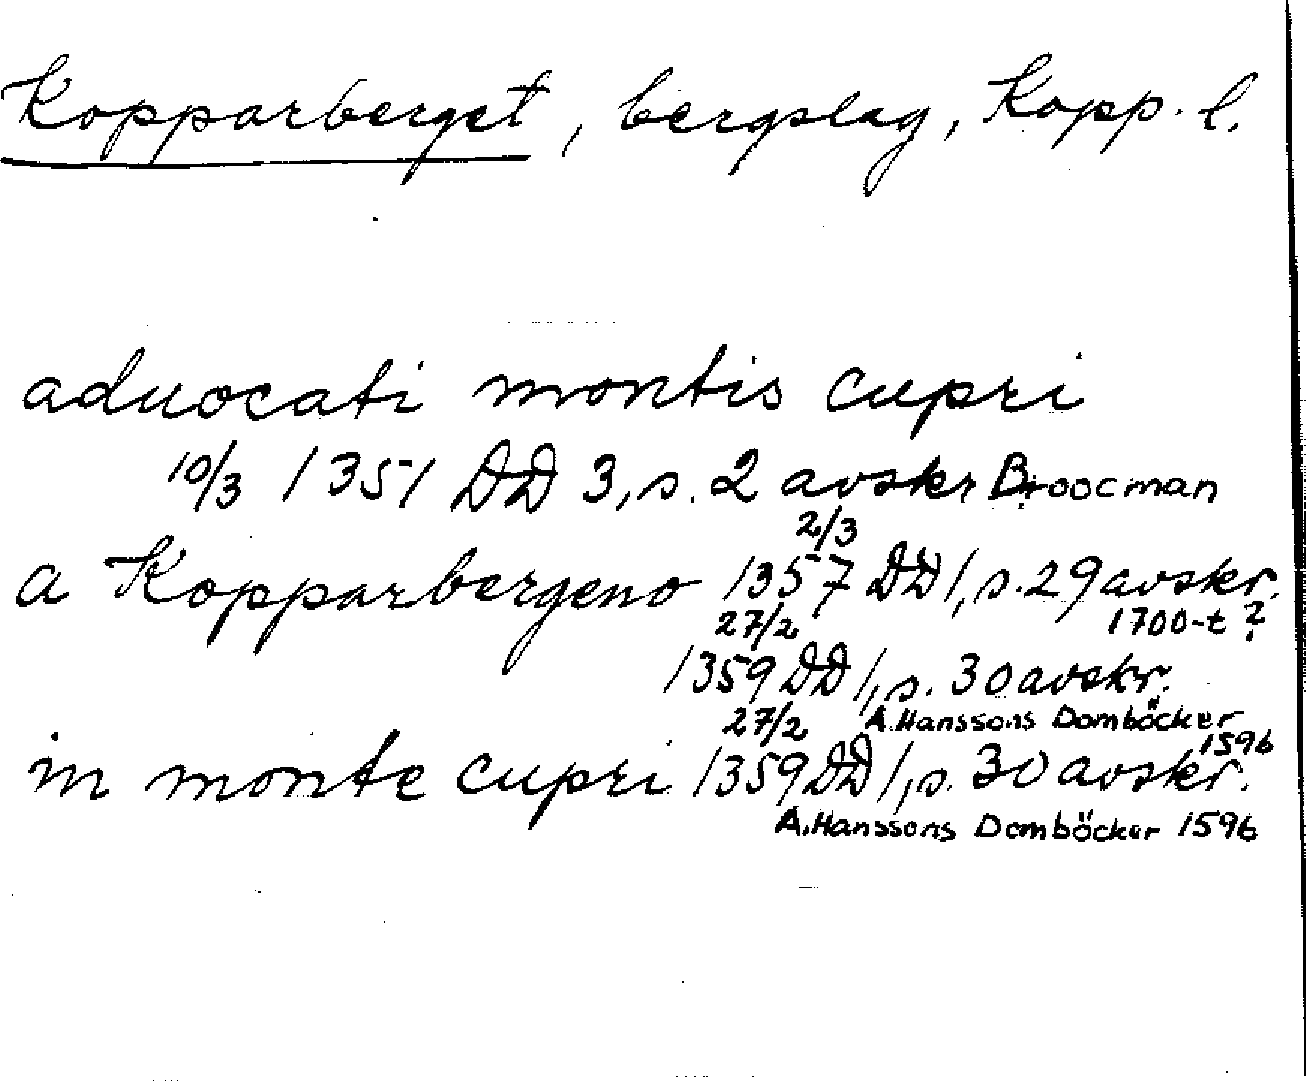 Kopparberget, bergslag, Kopp. l.
aduocati montis cupri
10/3 1351 DD 3, s. 2 avskr Broocman
a Kopparbergeno 2/3 1357 DD 1, s. 29 avskr. 1700-t ?
27/2 1359 DD 1, s. 30 avskr. A. Hanssons Domböcker 1596
in monte cupri 27/2 1359 DD 1, s. 30 avskr.
A. Hanssons Domböcker 1596